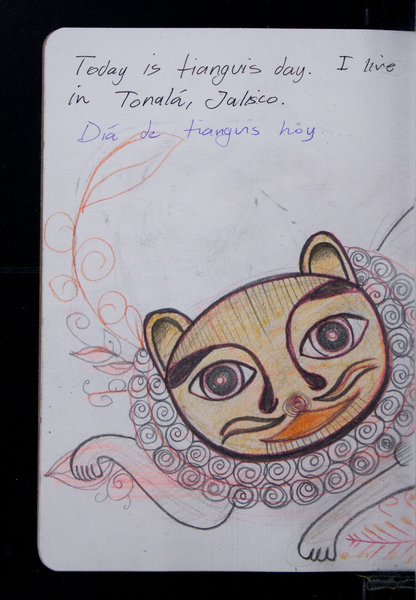 Today is tianguis day. I live
in Tonalá, Jalisco.
Día de tianguis hoy